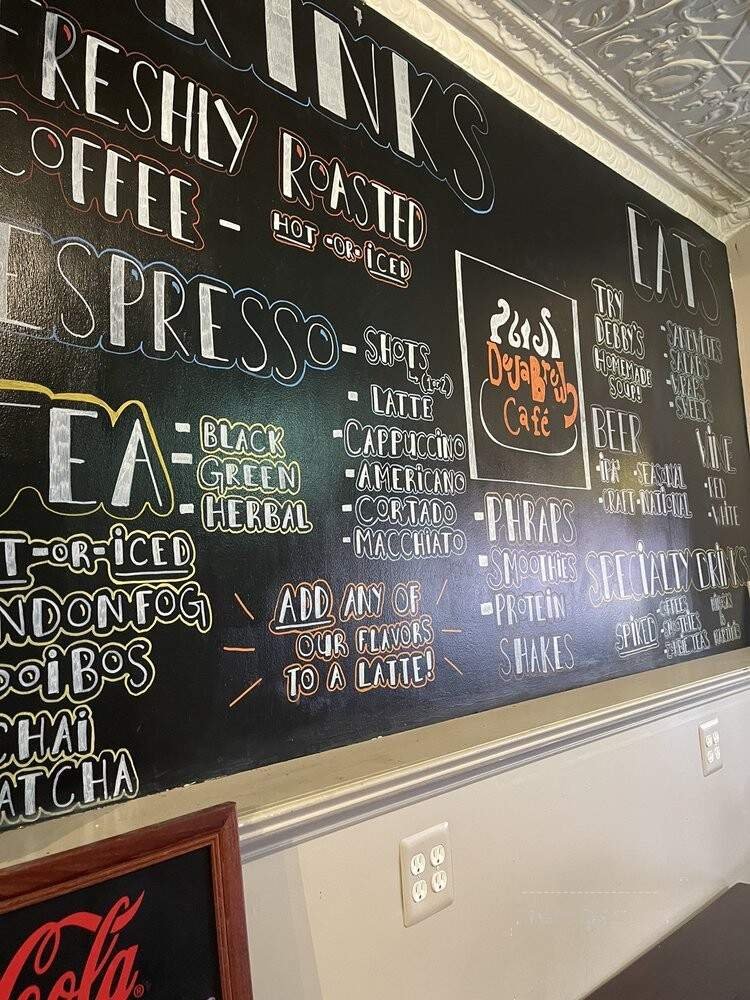 RINKS
FRESHLY ROASTED
COFFEE -
HOT -OR- ICED
ESPRESSO
- SHOTS
(1 or 2)
- LATTE
- CAPPUCCINO
- AMERICANO
- CORTADO
- MACCHIATO
TEA
- BLACK
- GREEN
- HERBAL
T-OR-ICED
NDON FOG
OOIBOS
CHAI
ATCHA
ADD ANY OF
OUR FLAVORS
TO A LATTE!
DejaBrew
Café
- PHRAPS
- SMOOTHIES
- PROTEIN
SHAKES
EATS
TRY
DEBBY'S
HOMEMADE
SOUP!
- SANDWICHES
- SALADS
- WRAPS
- SWEETS
BEER
- IPA - SEASONAL
- CRAFT - NATIONAL
WINE
- RED
- WHITE
SPECIALTY DRINKS
SPIKED
- COFFEES
- SMOOTHIES
Cola